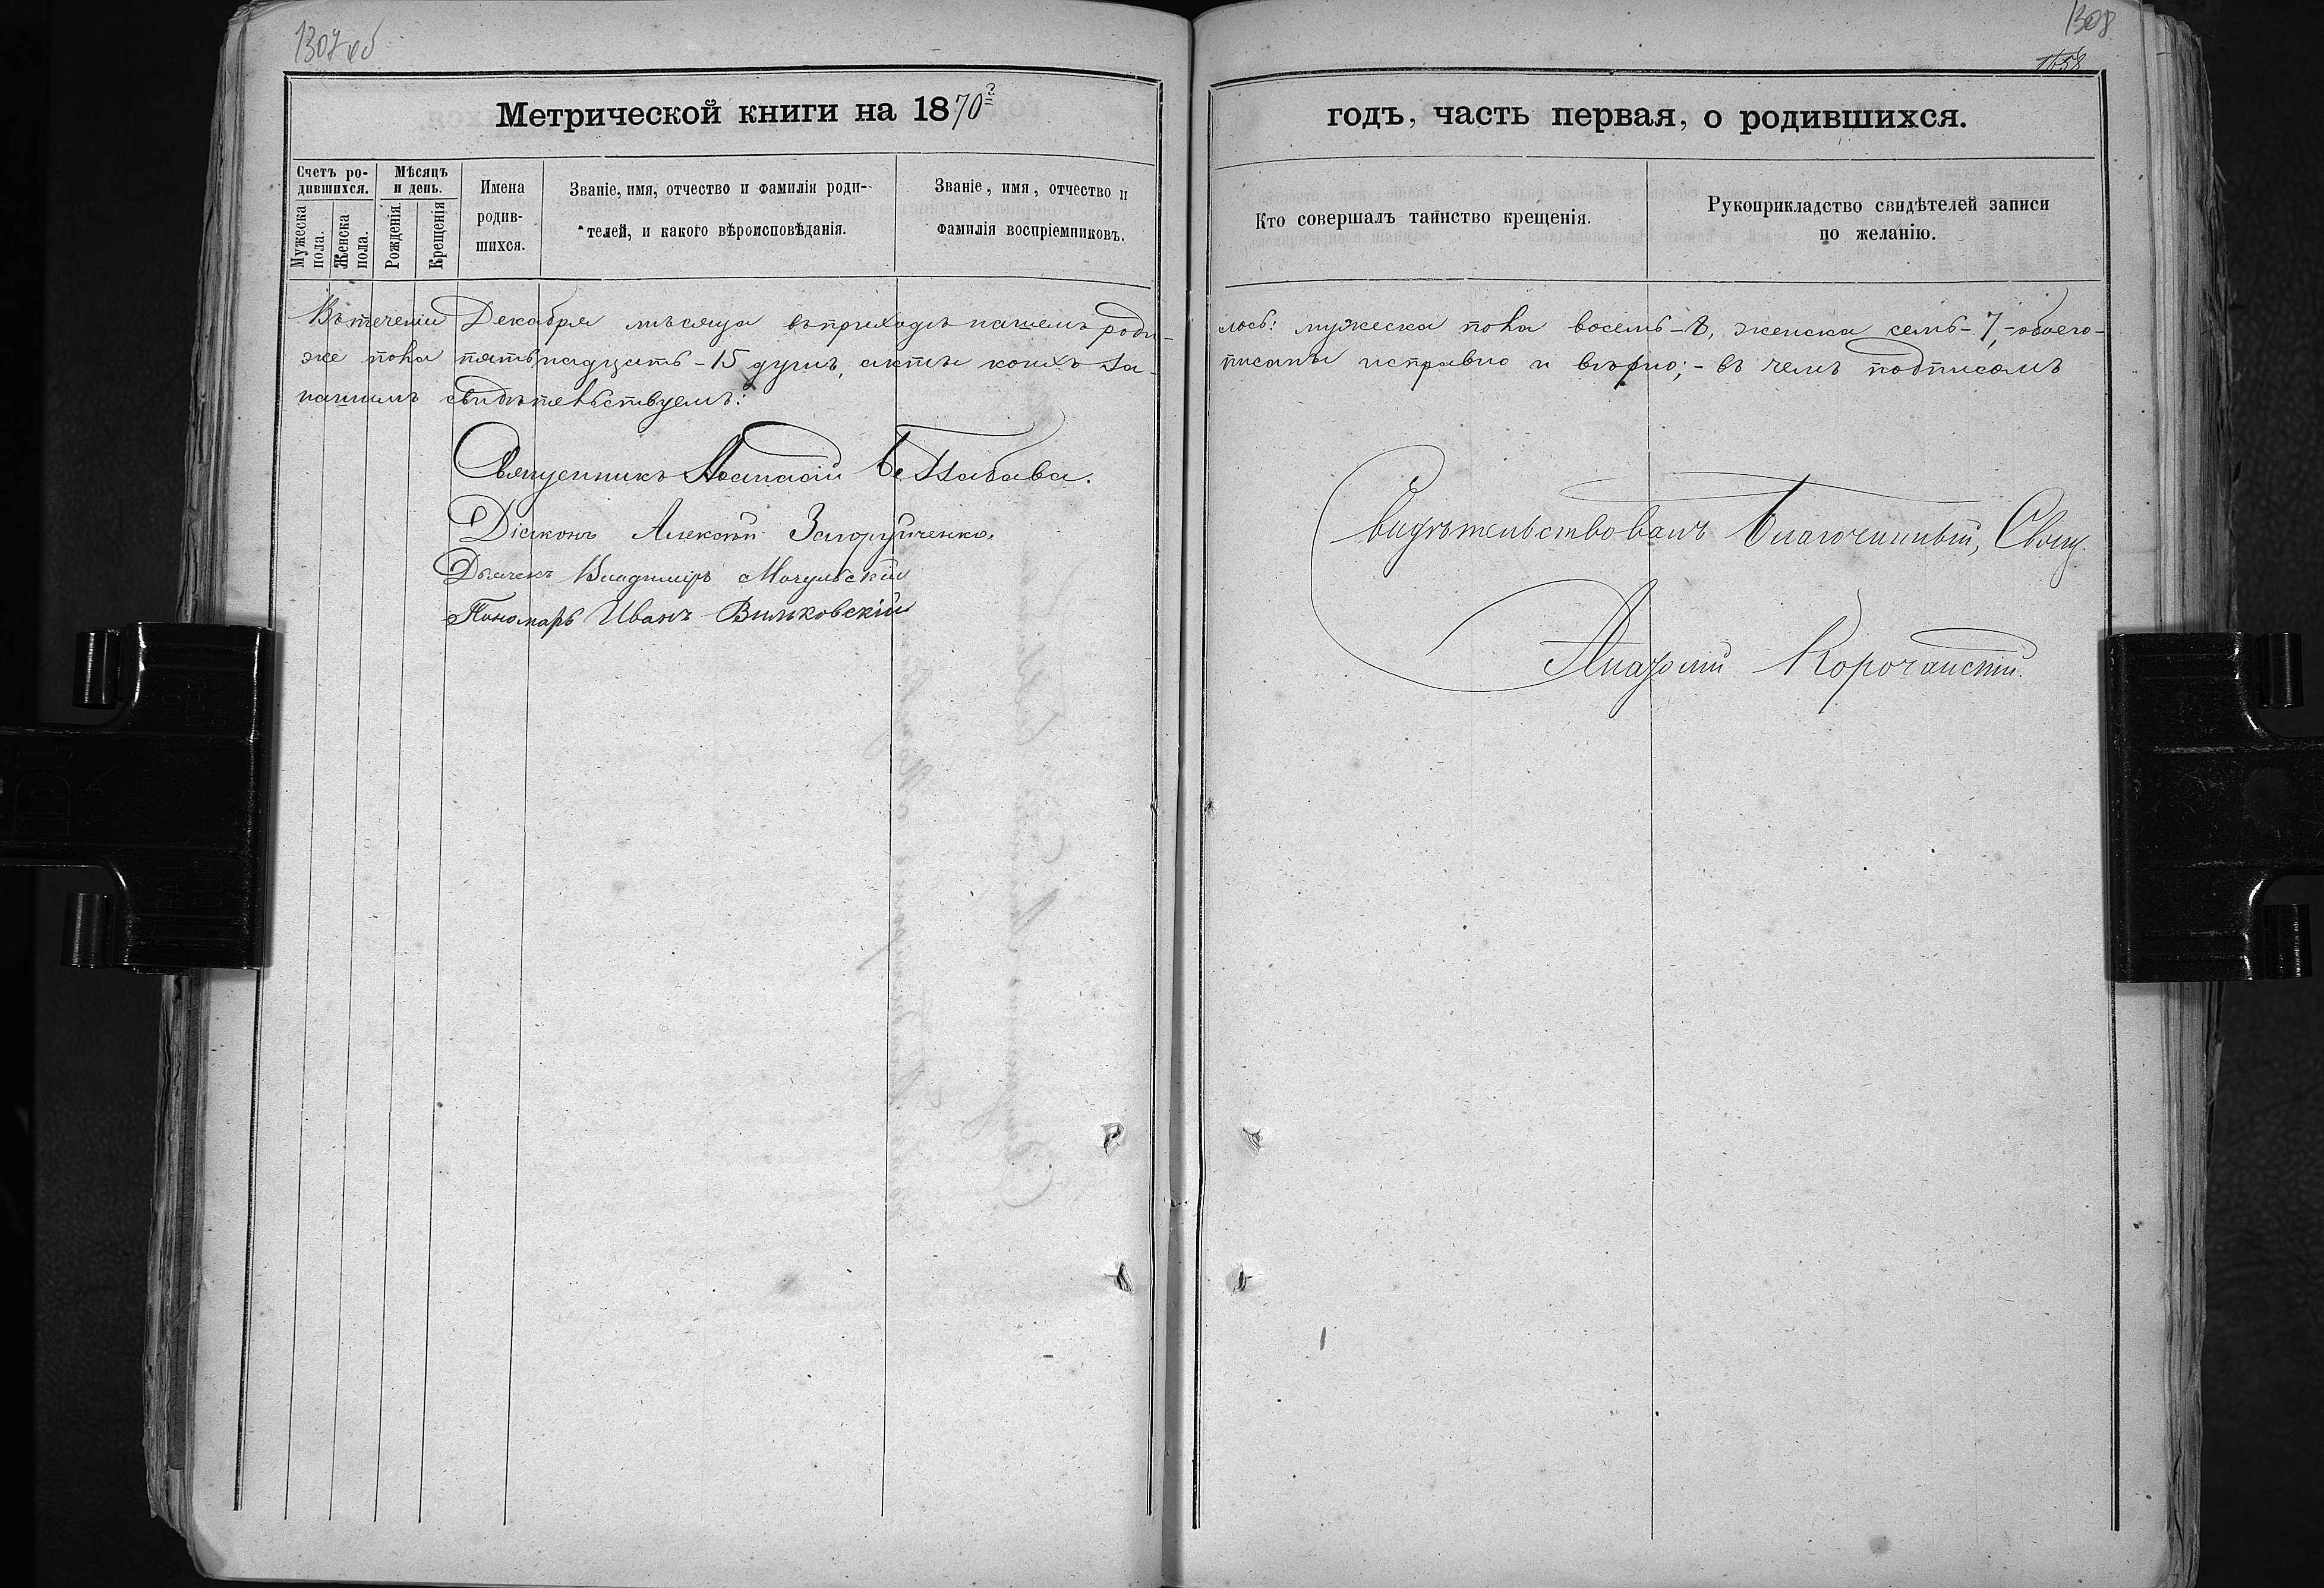 1307 об
Метрической книги на 1870й
Счетъ ро-
дившихся.
Мужеска
пола.
Женска
пола.
Мѣсяцъ
и день.
Рожденія.
Крещенія
Имена
родив-
шихся.
Званіе, имя, отчество и фамилія роди-
телей, и какого вѣроисповѣданія.
Званіе, имя, отчество и
фамилія воспріемниковъ.
Въ теченіи Декабря мѣсяца въ приходѣ нашемъ роди-
же пола пятьнадцать - 15 душъ, акты коихъ за-
нашимъ свидѣтельствуемъ:
Священникъ Аѳанасій
Діаконъ Алексѣй
Дьячекъ Владиміръ Мачульскій
Пономарь Иванъ Вильковскій
1308
1658
годъ, часть первая, о родившихся.
Кто совершалъ таинство крещенія.
Рукоприкладство свидѣтелей записи
по желанію.
лось: мужеска пола восемь - 8, женска семь - 7, - обоего-
писаны исправно и вѣрно; - въ чемъ подписомъ
Свидѣтельствовалъ Благочинный, Свящ.
Корочанскій.